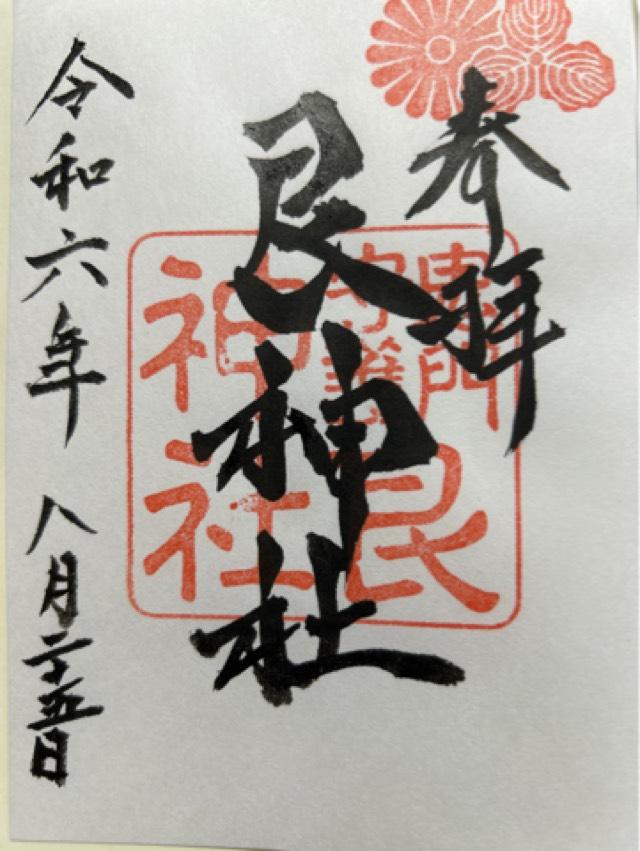 奉拝
艮神社
令和六年 八月二十五日
守護
艮
神社